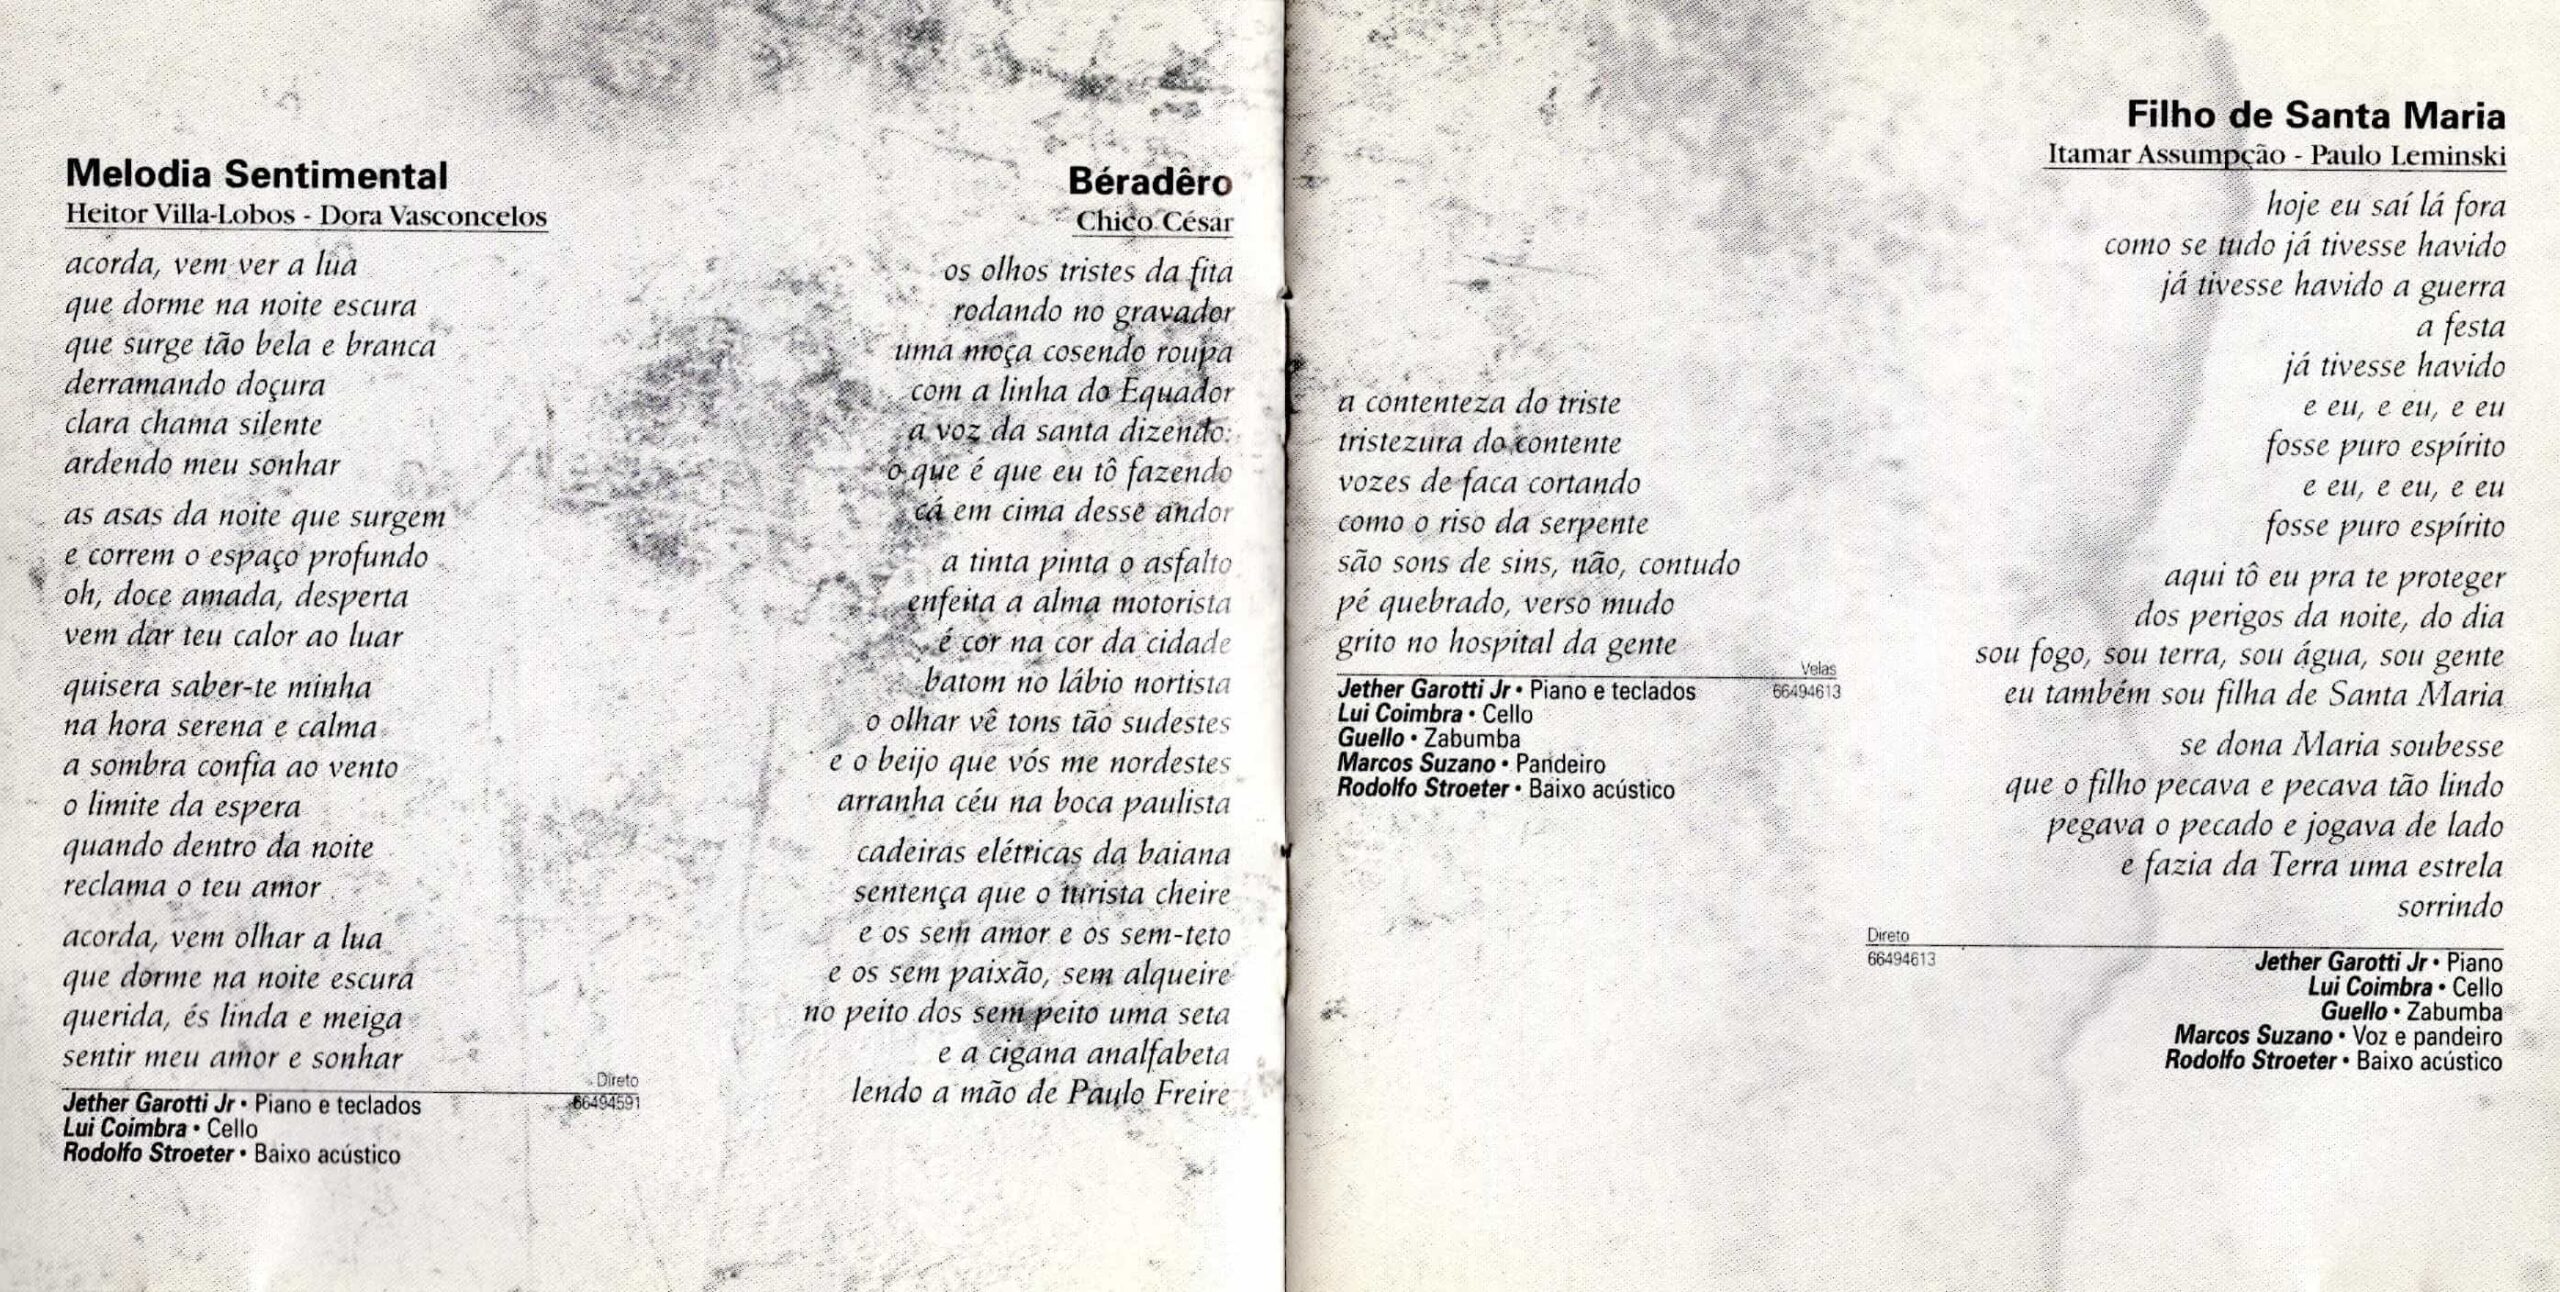 Melodia Sentimental
Heitor Villa-Lobos - Dora Vasconcelos
acorda, vem ver a lua
que dorme na noite escura
que surge tão bela e branca
derramando doçura
clara chama silente
ardendo meu sonhar
as asas da noite que surgem
e correm o espaço profundo
oh, doce amada, desperta
vem dar teu calor ao luar
quisera saber-te minha
na hora serena e calma
a sombra confia ao vento
o limite da espera
quando dentro da noite
reclama o teu amor
acorda, vem olhar a lua
que dorme na noite escura
querida, és linda e meiga
sentir meu amor e sonhar
Direto
66494591
Jether Garotti Jr • Piano e teclados
Lui Coimbra • Cello
Rodolfo Stroeter • Baixo acústico
Béradêro
Chico César
os olhos tristes da fita
rodando no gravador
uma moça cosendo roupa
com a linha do Equador
a voz da santa dizendo:
o que é que eu tô fazendo
cá em cima desse andor
a tinta pinta o asfalto
enfeita a alma motorista
é cor na cor da cidade
batom no lábio nortista
o olhar vê tons tão sudestes
e o beijo que vós me nordestes
arranha céu na boca paulista
cadeiras elétricas da baiana
sentença que o turista cheire
e os sem amor e os sem-teto
e os sem paixão, sem alqueire
no peito dos sem peito uma seta
e a cigana analfabeta
lendo a mão de Paulo Freire
a contenteza do triste
tristezura do contente
vozes de faca cortando
como o riso da serpente
são sons de sins, não, contudo
pé quebrado, verso mudo
grito no hospital da gente
Velas
66494613
Jether Garotti Jr • Piano e teclados
Lui Coimbra • Cello
Guello • Zabumba
Marcos Suzano • Pandeiro
Rodolfo Stroeter • Baixo acústico
Filho de Santa Maria
Itamar Assumpção - Paulo Leminski
hoje eu saí lá fora
como se tudo já tivesse havido
já tivesse havido a guerra
a festa
já tivesse havido
e eu, e eu, e eu
fosse puro espírito
e eu, e eu, e eu
fosse puro espírito
aqui tô eu pra te proteger
dos perigos da noite, do dia
sou fogo, sou terra, sou água, sou gente
eu também sou filha de Santa Maria
se dona Maria soubesse
que o filho pecava e pecava tão lindo
pegava o pecado e jogava de lado
e fazia da Terra uma estrela
sorrindo
Direto
66494613
Jether Garotti Jr • Piano
Lui Coimbra • Cello
Guello • Zabumba
Marcos Suzano • Voz e pandeiro
Rodolfo Stroeter • Baixo acústico